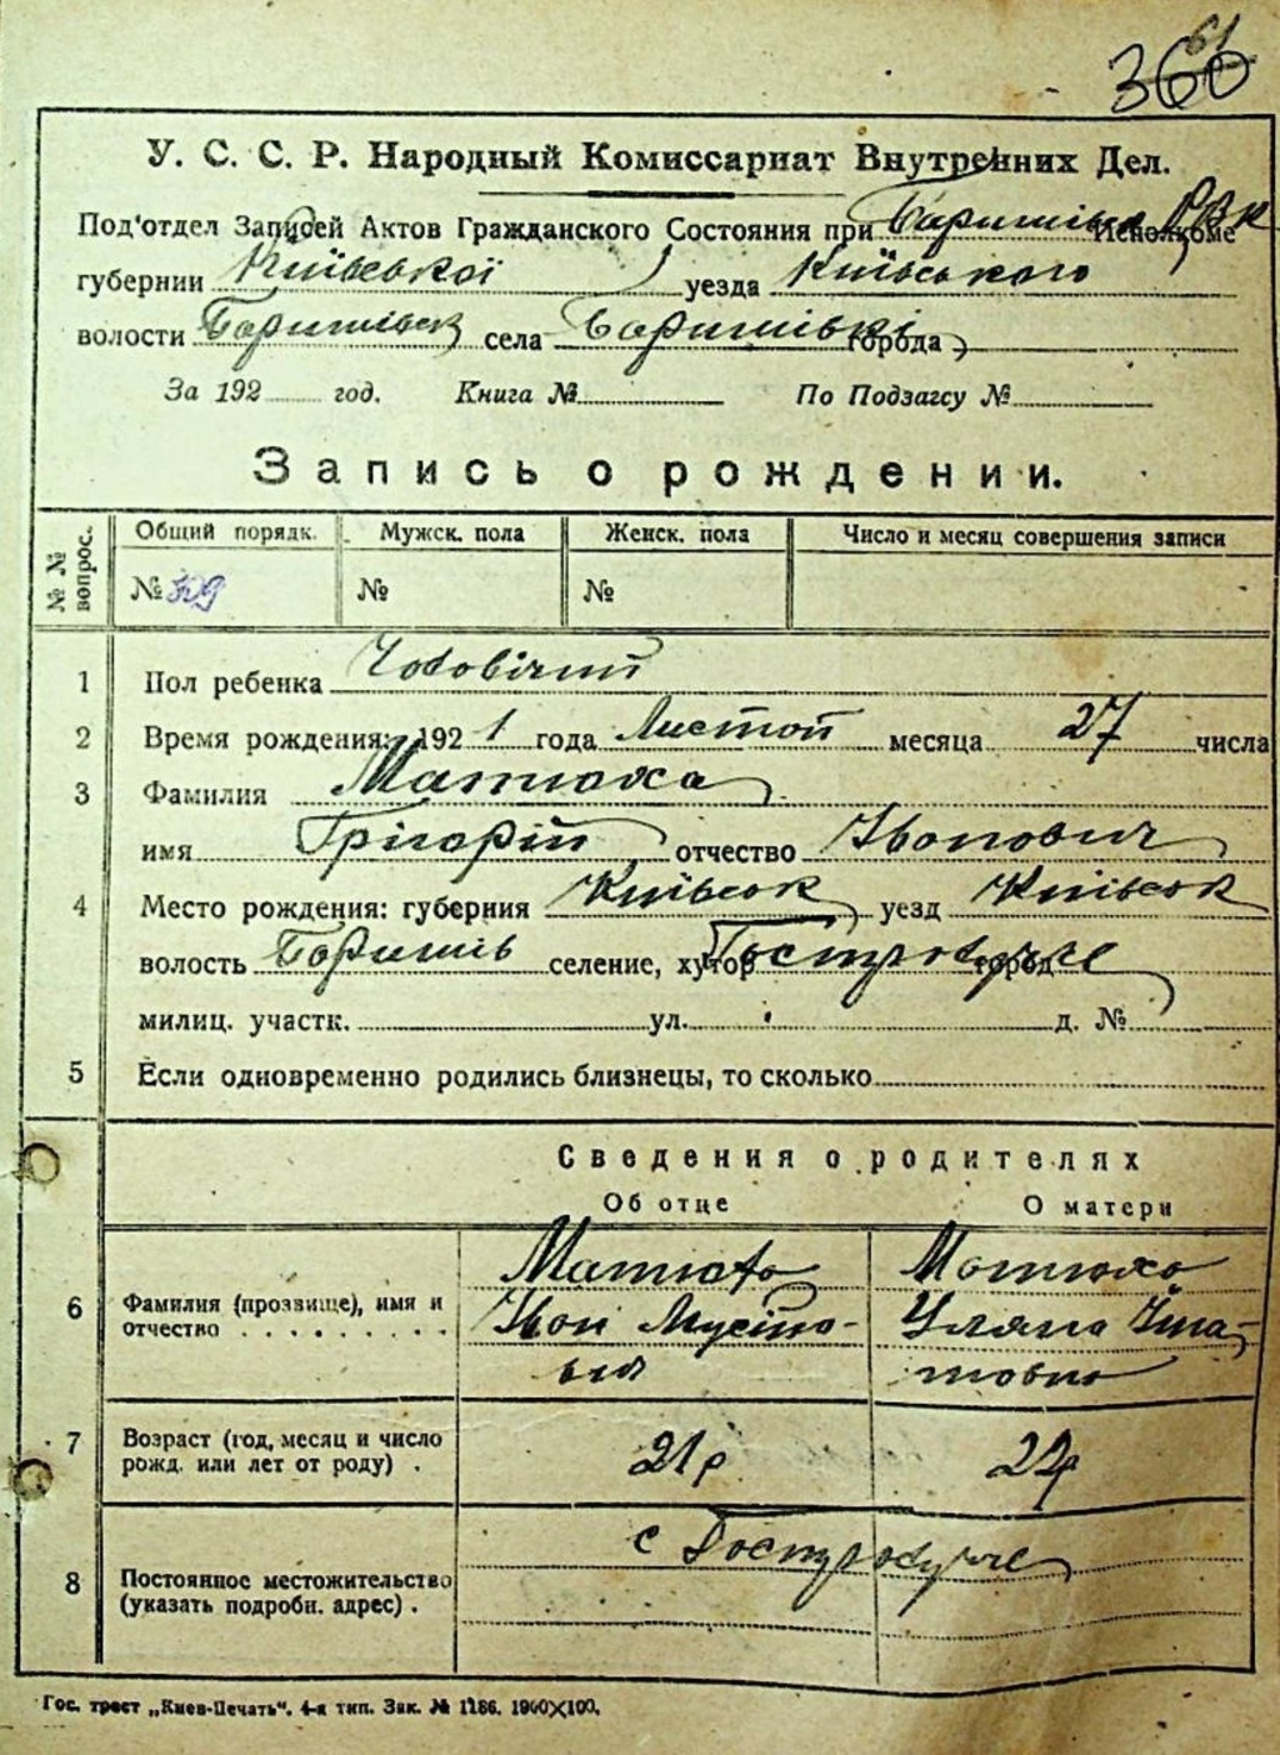 61
360
У. С. С. Р. Народный Комиссариат Внутренних Дел.
Под'отдел Записей Актов Гражданского Состояния при Баришівск РВК Исполкоме
губернии Київської уезда Київського
волости Баришівск села Баришівкі города
За 192 год. Книга № По Подзагсу №
Запись о рождении.
№№ вопрос. Общий порядк. Мужск. пола Женск. пола Число и месяц совершения записи
№ № №
1 Пол ребенка Чоловічий
2 Время рождения: 1921 года Листоп месяца 27 числа
3 Фамилия Матюха
имя Грігорій отчество Іванович
4 Место рождения: губерния Київськ уезд Київськ
волость Баришів селение, хутор Гостролучче город
милиц. участк. ул. д. №
5 Если одновременно родились близнецы, то сколько
Сведения о родителях
Об отце О матери
6 Фамилия (прозвище), имя и отчество Матюха Матюха
Іван Мусійо- Уляна Ігна-
вич товна
7 Возраст (год, месяц и число рожд. или лет от роду) 21р 22р
8 Постоянное местожительство (указать подробн. адрес) с Гостролуччє
Гос. трест „Киев-Печать“. 4-я тип. Зак. № 1186. 1900×100.